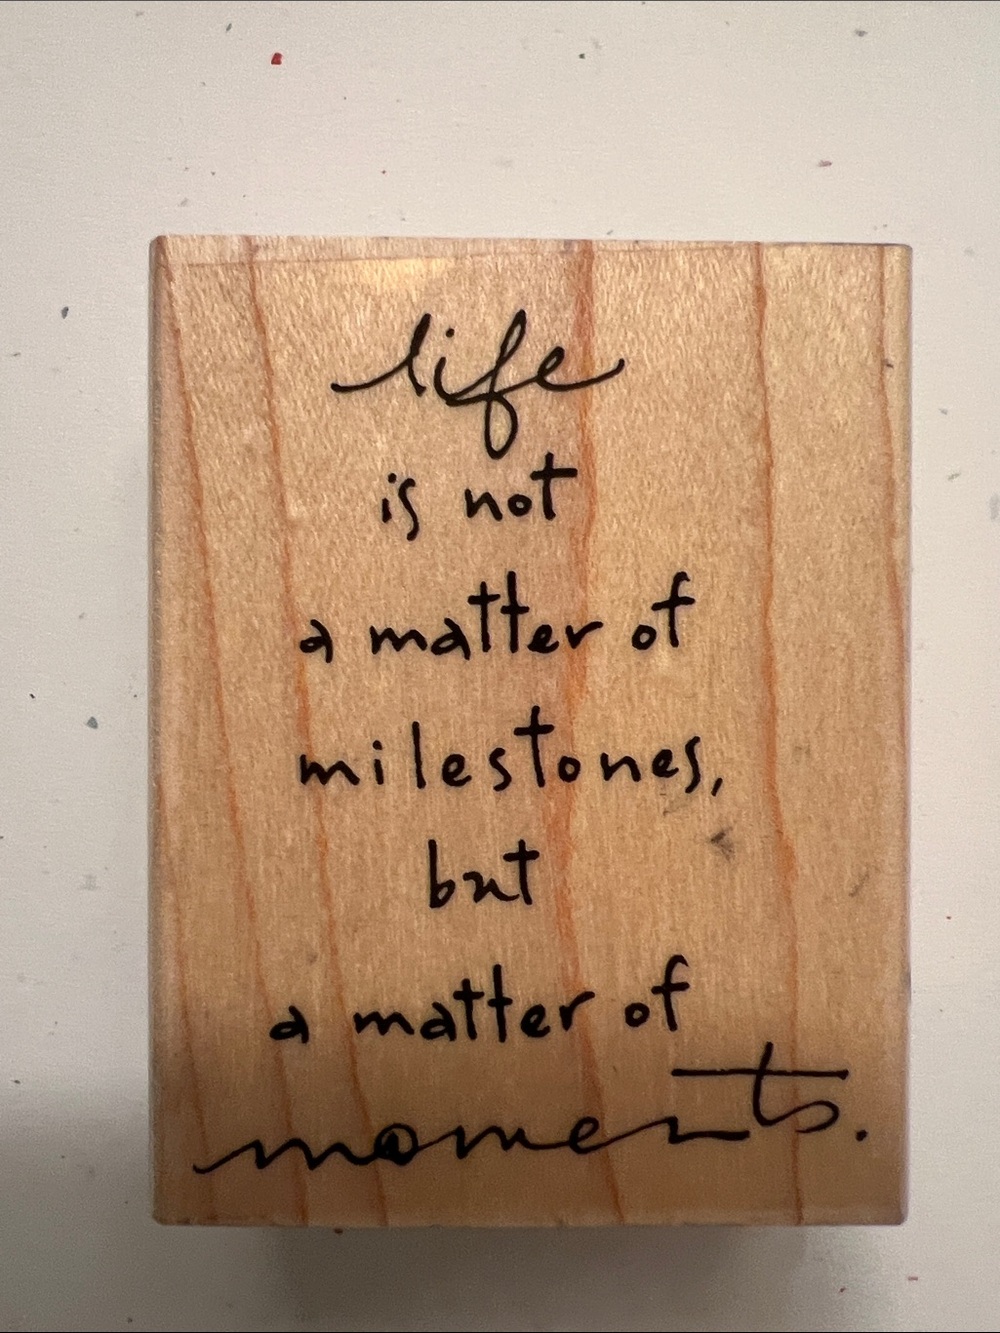 life
is not
a matter of
milestones,
but
a matter of
moments.